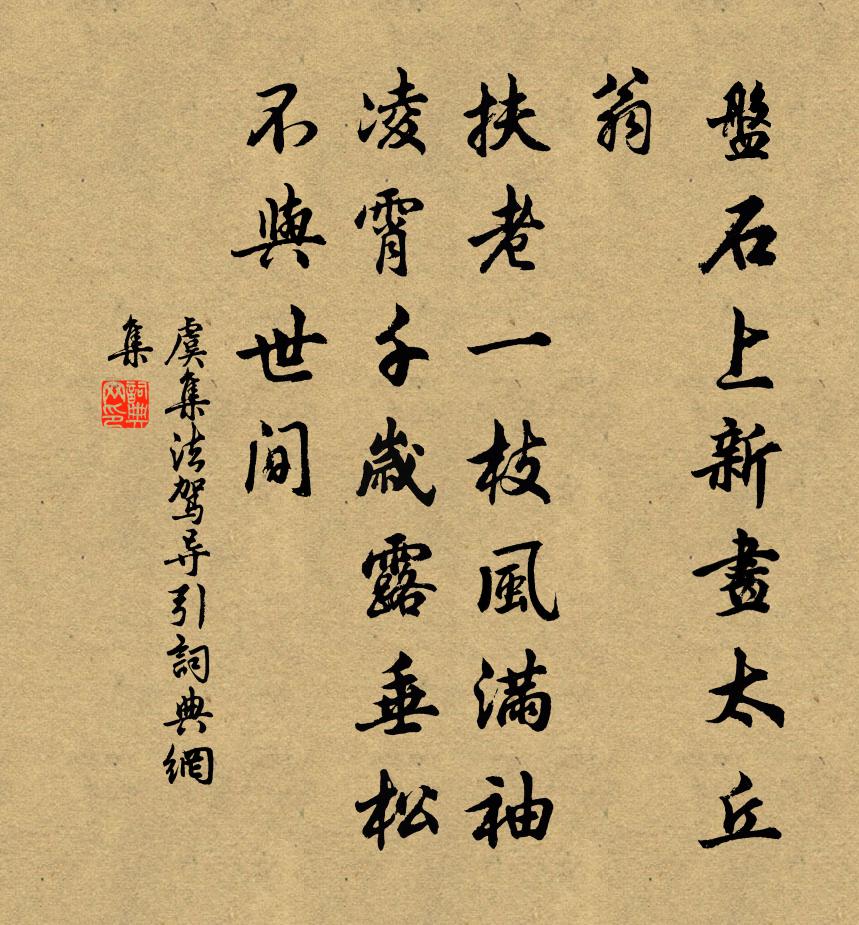 盤石上新畫太丘
翁
扶老一枝風滿袖
凌霄千歲露垂松
不與世間
虞集法駕导引詞典網
集
詞典
网印